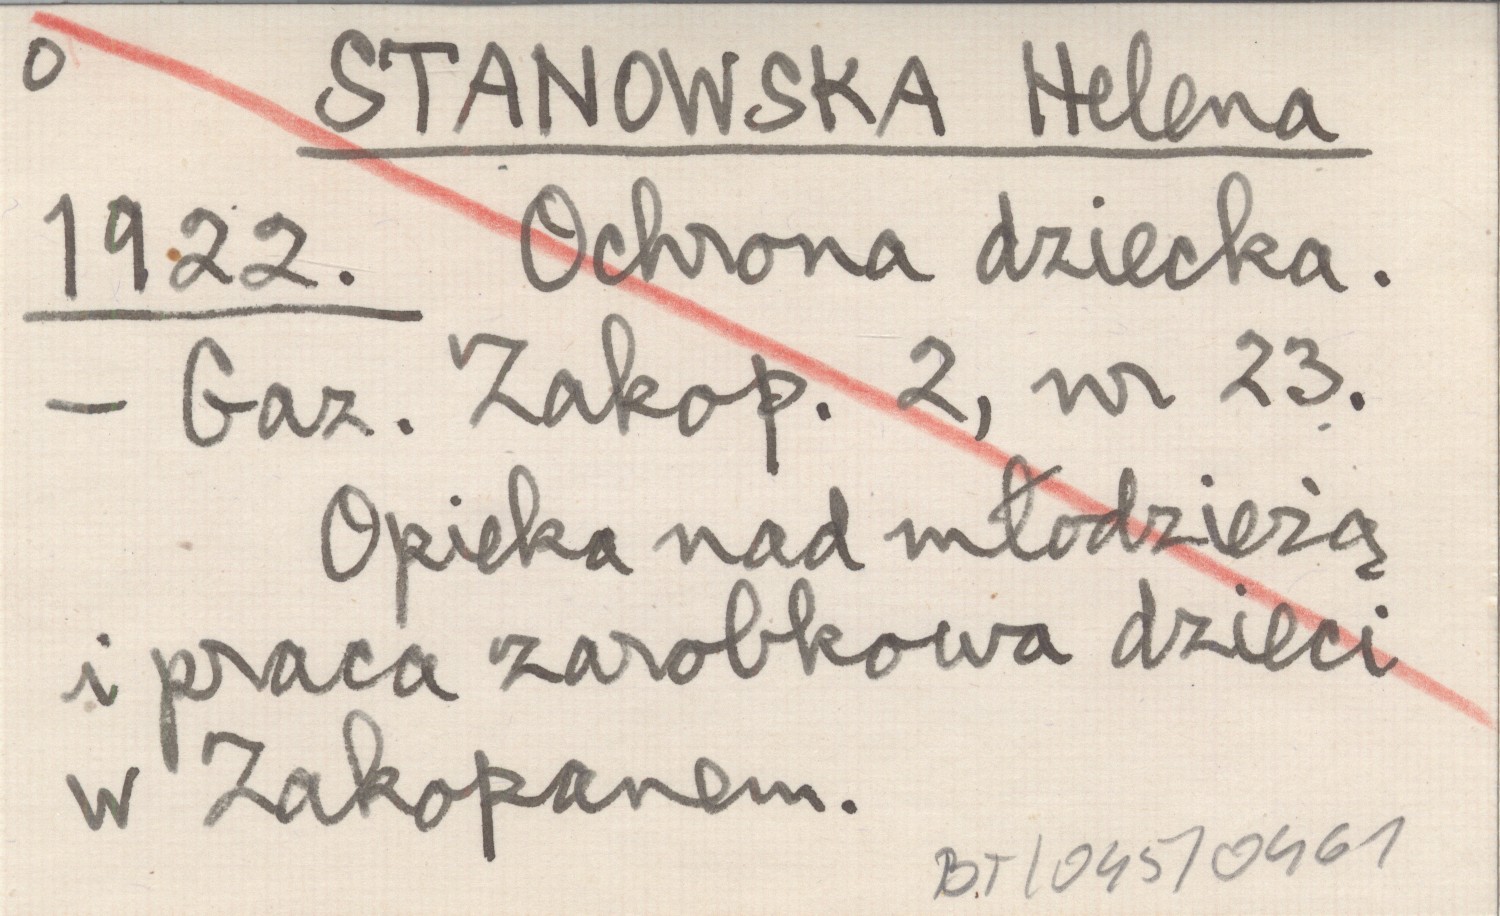 o
STANOWSKA Helena
1922. Ochrona dziecka.
- Gaz. Zakop. 2, nr 23.
Opieka nad młodzieżą
i praca zarobkowa dzieci
w Zakopanem.
BT/045/0461